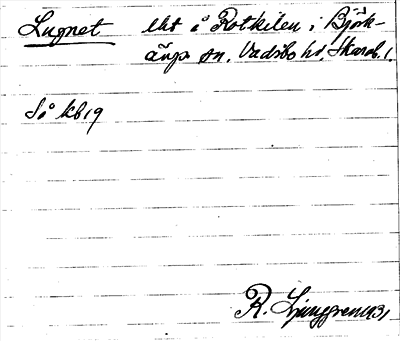 Lugnet lht å Rotkilen i Björk-
ängs sn, Vadsbo hd, Skarab. l.
Så kb 19
R. Ljunggren 1931